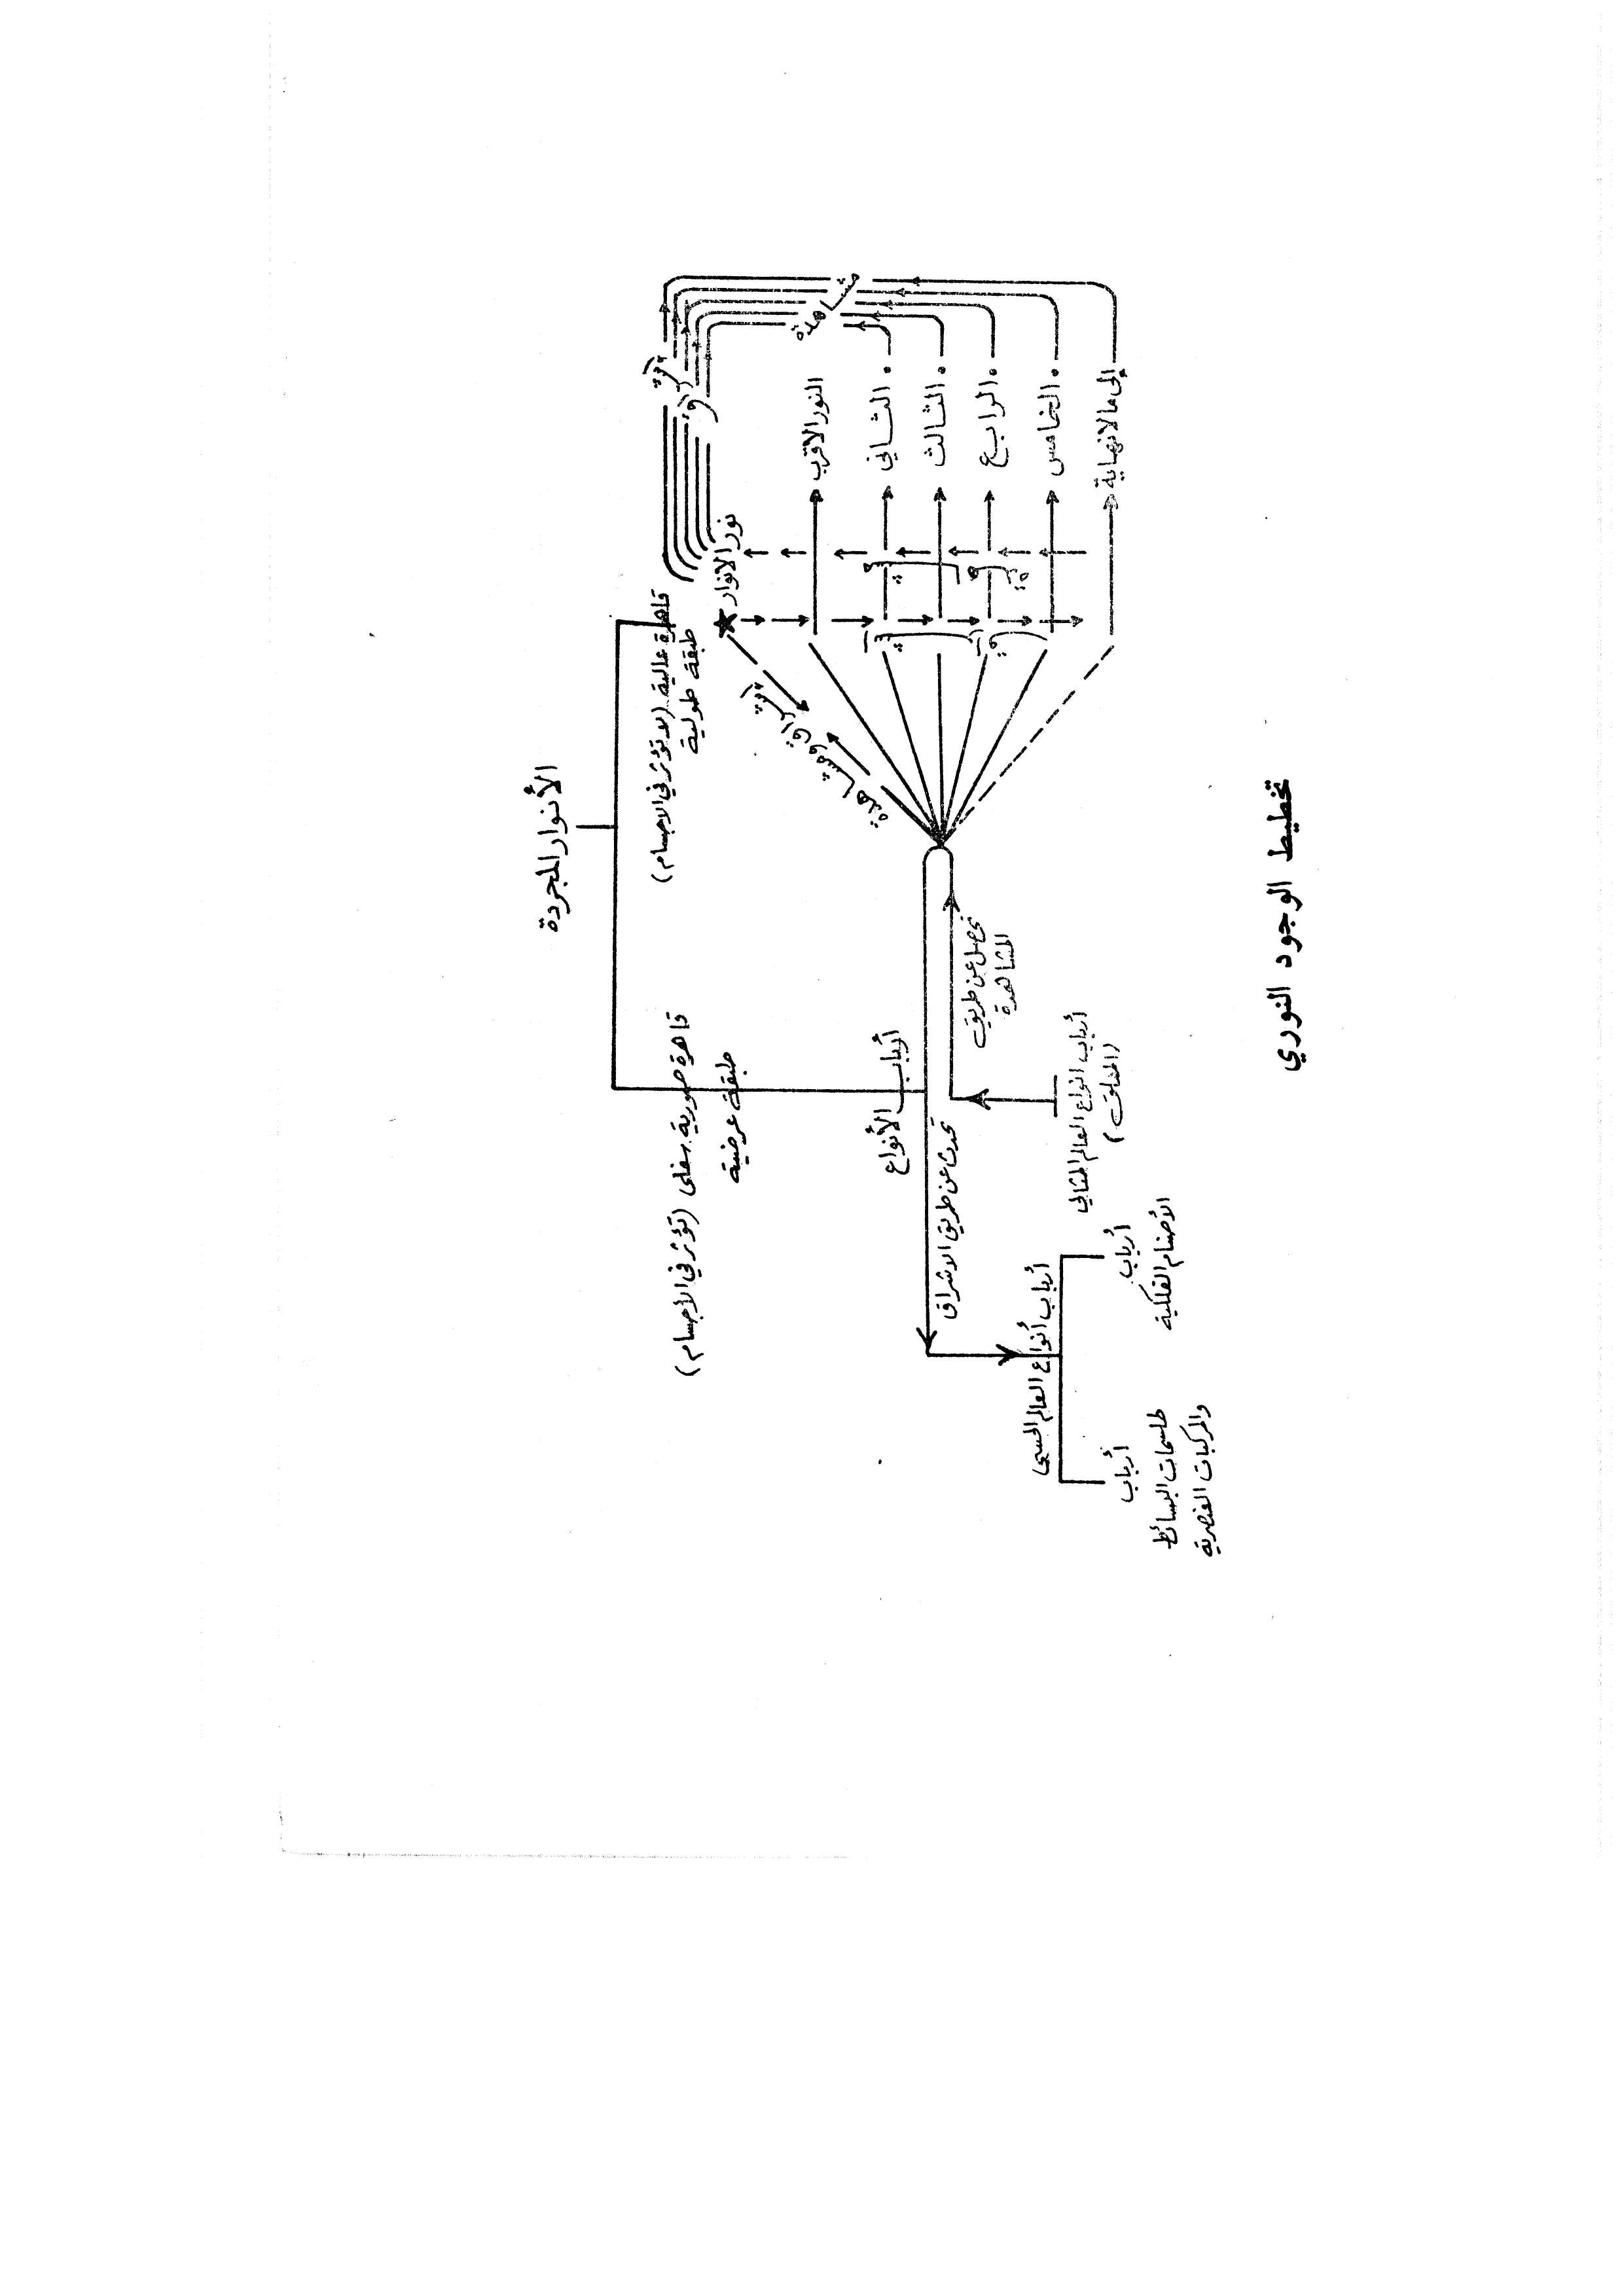 الأنوار المجردة
قاهرة عالية (لا تؤثر في الاجسام)
طبقة طولية
قاهرة صورية سفلى (تؤثر في الأجسام)
طبقة عرضية
نور الانوار
إشراق
مشاهدة
النور الاقرب
الثاني
الثالث
الرابع
الخامس
إلى ما لانهاية
مشاهدة
إشراق
إشراق ومشاهدة
أرباب الأنواع
تحصل عن طريق
المشاهدة
تحدث عن طريق الاشراق
أرباب انواع العالم المثالي
(المعلق)
أرباب أنواع العالم الحسي
أرباب
الأصنام الفلكية
أرباب
طلسمات البسائط
والمركبات العنصرية
تخطيط الوجود النوري